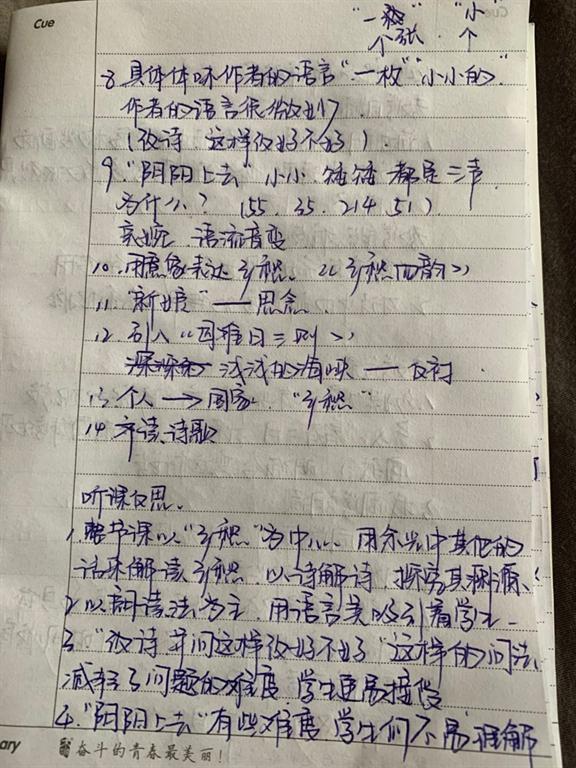 Cue
"一张" "小"
个 张 个
8. 具体体味作者的语言"一枚" "小小的"
作者的语言很细
(改诗 这样改好不好)
9. "阴阳上去" 小小 矮矮 都是三声
为什么? (55. 35. 214. 51)
变速 语流音变
10. 用意象表达乡愁. 《乡愁四韵》
11. "新娘" —— 思念.
12. 引入《国难日三则》
浅浅的海峡 —— 反衬
13. 个人 → 国家. "乡愁"
14. 齐读诗歌
听课反思.
1. 整节课以"乡愁"为中心. 用余光中其他的
话来解读乡愁. 以诗解诗. 探究其渊源.
2. 以朗读法为主. 用语言美吸引着学生.
3. "改诗并问这样改好不好" 这样的问法.
减轻了问题的难度 学生更易接受
4. "阴阳上去"有些难度 学生们不易理解
ary 奋斗的青春最美丽!